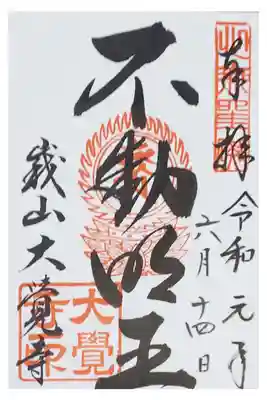 奉拝
令和元年
六月十四日
不動明王
峩山大覺寺
大覺
寺印